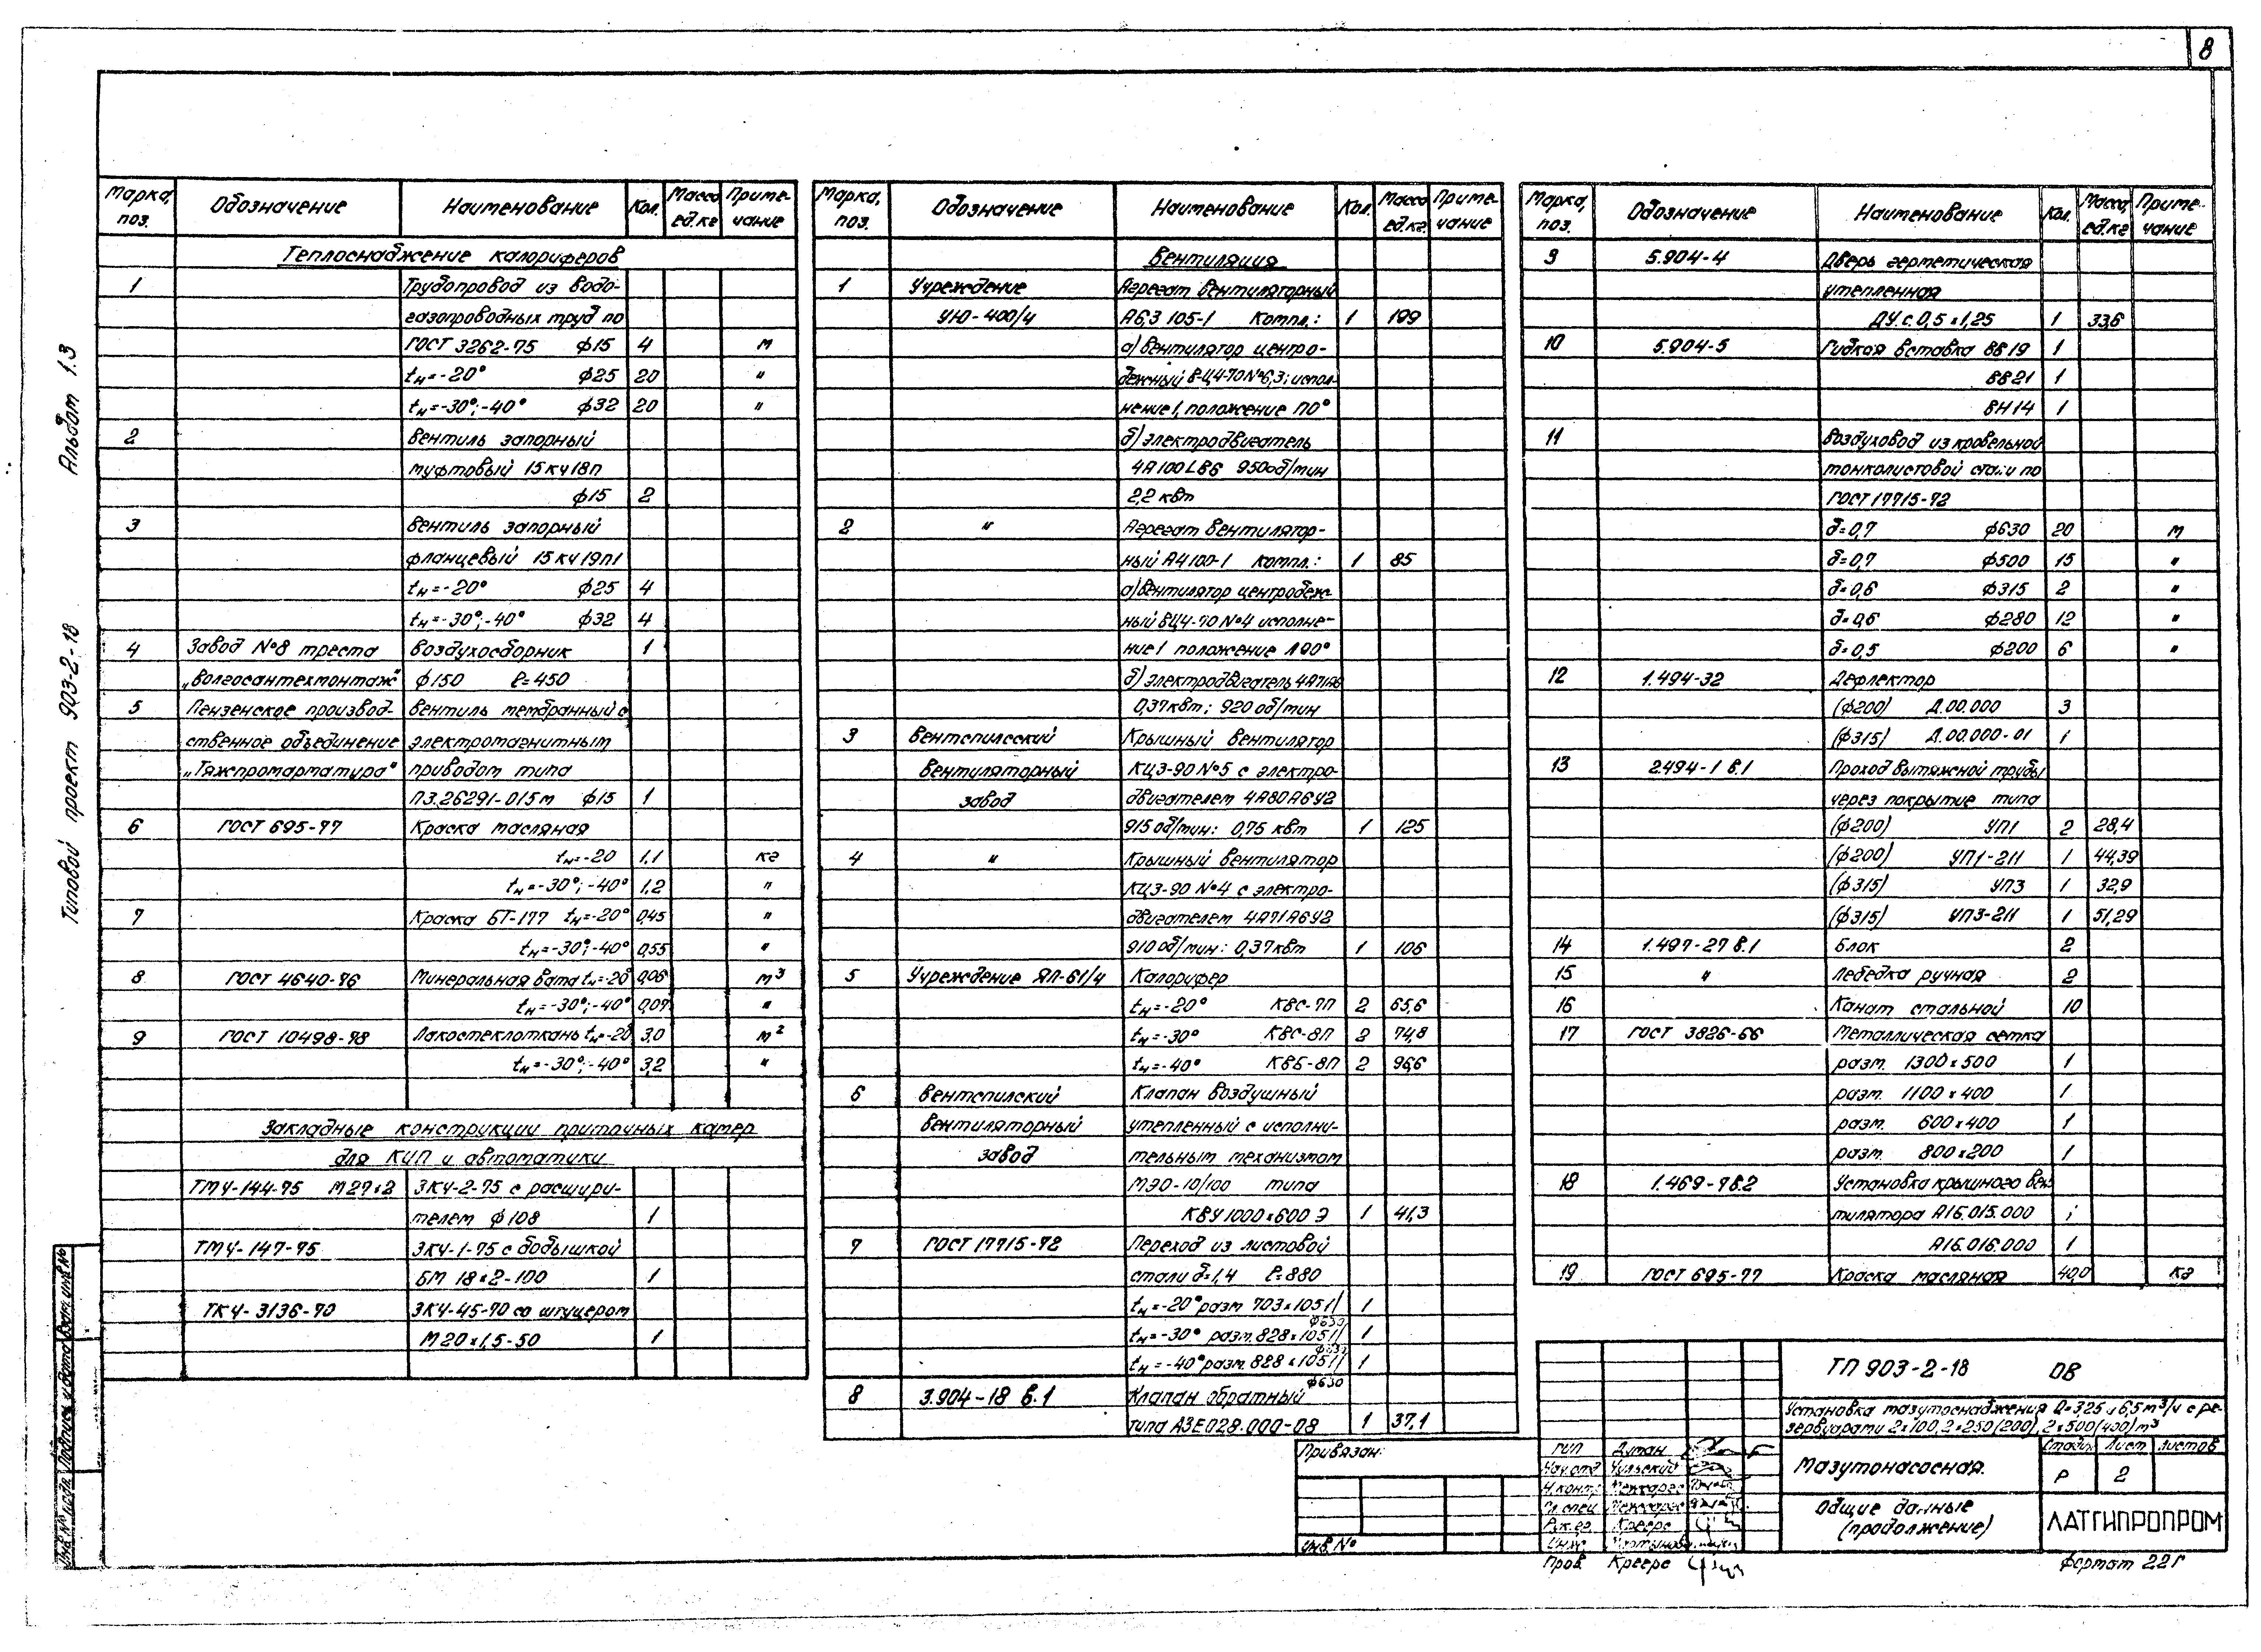 8
Альбом 1.3
Типовой проект 903-2-18
Марка, поз. Обозначение Наименование Кол. Масса ед.кг Приме-чание
Теплоснабжение калориферов
1 Трубопровод из водо-
газопроводных труб по
ГОСТ 3262-75 ф15 4 м
tн=-20° ф25 20 "
tн=-30°;-40° ф32 20 "
2 Вентиль запорный
муфтовый 15кч18п
ф15 2
3 Вентиль запорный
фланцевый 15кч19п1
tн=-20° ф25 4
tн=-30°;-40° ф32 4
4 Завод №8 треста Воздухосборник 1
„Волгосантехмонтаж" ф150 l=450
5 Пензенское производ- Вентиль мембранный с
ственное объединение электромагнитным
„Тяжпромарматура" приводом типа
ПЗ.26291-015м ф15 1
6 ГОСТ 695-77 Краска масляная
tн=-20 1,1 кг
tн=-30°;-40° 1,2 "
7 Краска БТ-177 tн=-20° 0,45 "
tн=-30°;-40° 0,55 "
8 ГОСТ 4640-76 Минеральная вата tн=-20° 0,06 м³
tн=-30°;-40° 0,07 "
9 ГОСТ 10498-78 Лакостеклоткань tн=-20 3,0 м²
tн=-30°;-40° 3,2 "
Закладные конструкции приточных камер
для КИП и автоматики
ТМ4-144-75 М27х2 ЗК4-2-75 с расшири-
телем ф108 1
ТМ4-147-75 ЗК4-1-75 с бобышкой
БМ 18х2-100 1
ТК4-3136-70 ЗК4-45-70 со штуцером
М20х1,5-50 1
Марка, поз. Обозначение Наименование Кол. Масса ед.кг. Приме-чание
Вентиляция
1 Учреждение Агрегат вентиляторный
УЮ-400/4 А6,3 105-1 Компл.: 1 199
а) вентилятор центро-
бежный В-Ц4-70№6,3; испол-
нение1, положение П0°
б) электродвигатель
4А100L86 950об/мин
2,2 квт
2 " Агрегат вентилятор-
ный А4100-1 компл.: 1 85
а) вентилятор центробеж-
ный ВЦ4-70 №4 исполне-
ние1 положение Л90°
б) электродвигатель 4А71А6
0,37квт; 920 об/мин
3 Вентспилсский Крышный вентилятор
вентиляторный КЦ3-90 №5 с электро-
завод двигателем 4А80А6У2
915 об/мин: 0,75 квт 1 125
4 " Крышный вентилятор
КЦ3-90 №4 с электро-
двигателем 4А71А6У2
910 об/мин: 0,37квт 1 106
5 Учреждение ЯЛ-61/4 Калорифер
tн=-20° КВС-7П 2 65,6
tн=-30° КВС-8П 2 74,8
tн=-40° КВБ-8П 2 96,6
6 Вентспилский Клапан воздушный
вентиляторный утепленный с исполни-
завод тельным механизмом
МЭО-10/100 типа
КВУ 1000х600 Э 1 41,3
7 ГОСТ 17715-72 Переход из листовой
стали δ=1,4 l=880
tн=-20° разм 703х1051/ф630 1
tн=-30° разм. 828х1051/ф630 1
tн=-40° разм. 828х1051/ф630 1
8 3.904-18 в.1 Клапан обратный
типа АЗЕ028.000-08 1 37,1
Марка, поз. Обозначение Наименование Кол. Масса, ед.кг Приме-чание
9 5.904-4 Дверь герметическая
утепленная
ДУ.с.0,5х1,25 1 33,6
10 5.904-5 Гибкая вставка ВВ19 1
ВВ21 1
ВН14 1
11 Воздуховод из кровельной
тонколистовой стали по
ГОСТ 17715-72
δ=0,7 ф630 20 м
δ=0,7 ф500 15 "
δ=0,6 ф315 2 "
δ=0,6 ф280 12 "
δ=0,5 ф200 6 "
12 1.494-32 Дефлектор
(ф200) Д.00.000 3
(ф315) Д.00.000-01 1
13 2.494-1 в.1 Проход вытяжной трубы
через покрытие типа
(ф200) УП1 2 28,4
(ф200) УП1-211 1 44,39
(ф315) УП3 1 32,9
(ф315) УП3-211 1 51,29
14 1.497-27 в.1 Блок 2
15 " Лебедка ручная 2
16 Канат стальной 10
17 ГОСТ 3826-66 Металлическая сетка
разм. 1300х500 1
разм. 1100х400 1
разм. 600х400 1
разм. 800х200 1
18 1.469-7в.2 Установка крышного вен-
тилятора А16.015.000 1
А16.016.000 1
19 ГОСТ 695-77 Краска масляная 40,0 кг
ТП 903-2-18 ОВ
Установка мазутоснабжения Q=3,25 и 6,5 м³/ч с ре-
зервуарами 2х100, 2х250(200), 2х500(400) м³
Мазутонасосная.
Стадия Лист Листов
Р 2
Общие данные
(продолжение)
ЛАТГИПРОПРОМ
Привязан:
Инв №
ГИП Думан
Нач.отд Чульский
Н.контр
Гл.спец
Рук.гр. Креерс
Инж
Пров Креерс
Формат 22Г
Инв.№ подл. Подпись и дата Взам.инв.№